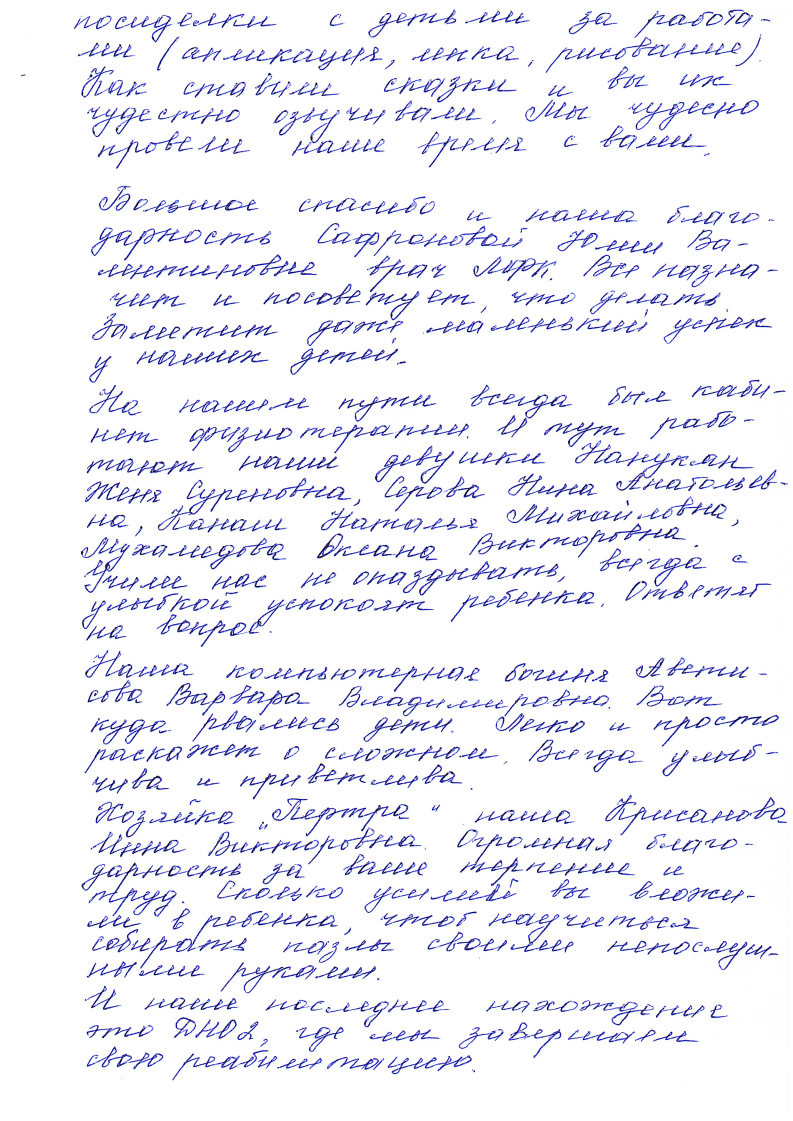 посиделки с детьми за работа-
ми (апликация, лепка, рисование).
Как ставили сказки и вы их
чудестно озвучивали. Мы чудесно
провели наше время с вами.
Большое спасибо и наша благо-
дарность Сафроновой Юлии Ва-
лентиновне врач ЛФК. Все назна-
чит и посоветует, что делать.
Заметит даже маленький успех
у наших детей.
На нашем пути всегда был каби-
нет физиотерапии. И тут рабо-
тают наши девушки Нанукян
Женя Суреновна, Серова Нина Анатольев-
на, Канаш Наталья Михайловна,
Мухамедова Оксана Викторовна.
Учили нас не опаздывать, всегда с
улыбкой успокоят ребенка. Ответят
на вопрос.
Наша компьютерная богиня Авети-
сова Варвара Владимировна. Вот
куда рвались дети. Легко и просто
раскажет о сложном. Всегда улыб-
чива и приветлива.
Хозяйка „Пертра" наша Крисанова
Инна Викторовна. Огромная благо-
дарность за ваше терпение и
труд. Сколько усилий вы вложи-
ли в ребенка, чтоб научиться
собирать пазлы своими непослуш-
ными руками.
И наше последнее нахождение
это ДНО2, где мы завершаем
свою реабилитацию.